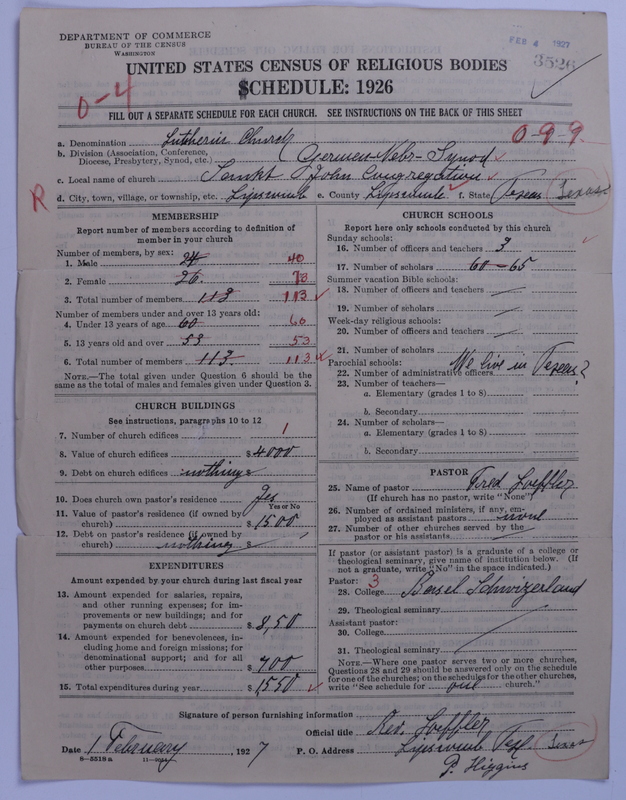 DEPARTMENT OF COMMERCE
BUREAU OF THE CENSUS
WASHINGTON
FEB 4 1927
3526
UNITED STATES CENSUS OF RELIGIOUS BODIES
SCHEDULE: 1926
0-4
FILL OUT A SEPARATE SCHEDULE FOR EACH CHURCH. SEE INSTRUCTIONS ON THE BACK OF THIS SHEET
0-9 9.
a. Denomination Lutherin Church
b. Division (Association, Conference, Diocese, Presbytery, Synod, etc.) German-Nebr-Synod
c. Local name of church Sankt John Congregation
R
d. City, town, village, or township, etc. Lipscomb e. County Lipscomb f. State Texas Texas
MEMBERSHIP
Report number of members according to definition of
member in your church
Number of members, by sex:
1. Male 40
2. Female 73
3. Total number of members 113 113
Number of members under and over 13 years old:
4. Under 13 years of age 60 60
5. 13 years old and over 53 53
6. Total number of members 113. 113
NOTE.—The total given under Question 6 should be the
same as the total of males and females given under Question 3.
CHURCH BUILDINGS
See instructions, paragraphs 10 to 12
7. Number of church edifices 1
8. Value of church edifices $ 4000
9. Debt on church edifices nothing $
10. Does church own pastor's residence Yes
Yes or No
11. Value of pastor's residence (if owned by
church) $ 1500
12. Debt on pastor's residence (if owned by
church) nothing $
EXPENDITURES
Amount expended by your church during last fiscal year
13. Amount expended for salaries, repairs,
and other running expenses; for im-
provements or new buildings; and for
payments on church debt $ 8,50
14. Amount expended for benevolences, in-
cluding home and foreign missions; for
denominational support; and for all
other purposes $ 700
15. Total expenditures during year $ 1550
CHURCH SCHOOLS
Report here only schools conducted by this church
Sunday schools:
16. Number of officers and teachers 3
17. Number of scholars 60-65
Summer vacation Bible schools:
18. Number of officers and teachers
19. Number of scholars
Week-day religious schools:
20. Number of officers and teachers
21. Number of scholars
Parochial schools: We live in Texas?
22. Number of administrative officers
23. Number of teachers—
a. Elementary (grades 1 to 8)
b. Secondary
24. Number of scholars—
a. Elementary (grades 1 to 8)
b. Secondary
PASTOR
25. Name of pastor Fred Loeffler
(If church has no pastor, write "None")
26. Number of ordained ministers, if any, em-
ployed as assistant pastors none
27. Number of other churches served by the
pastor or his assistants
If pastor (or assistant pastor) is a graduate of a college or
theological seminary, give name of institution below. (If
not a graduate, write "No" in the space indicated.)
Pastor: 3
28. College Basel Schwizerland
29. Theological seminary
Assistant pastor:
30. College
31. Theological seminary
NOTE.—Where one pastor serves two or more churches,
Questions 28 and 29 should be answered only on the schedule
for one of the churches; on the schedules for the other churches,
write "See schedule for one church."
Signature of person furnishing information
Official title Rev. Loeffler
Date 1 February, 1927 P. O. Address Lipscomb Tex. Texas
P. Higgins
8—5518a